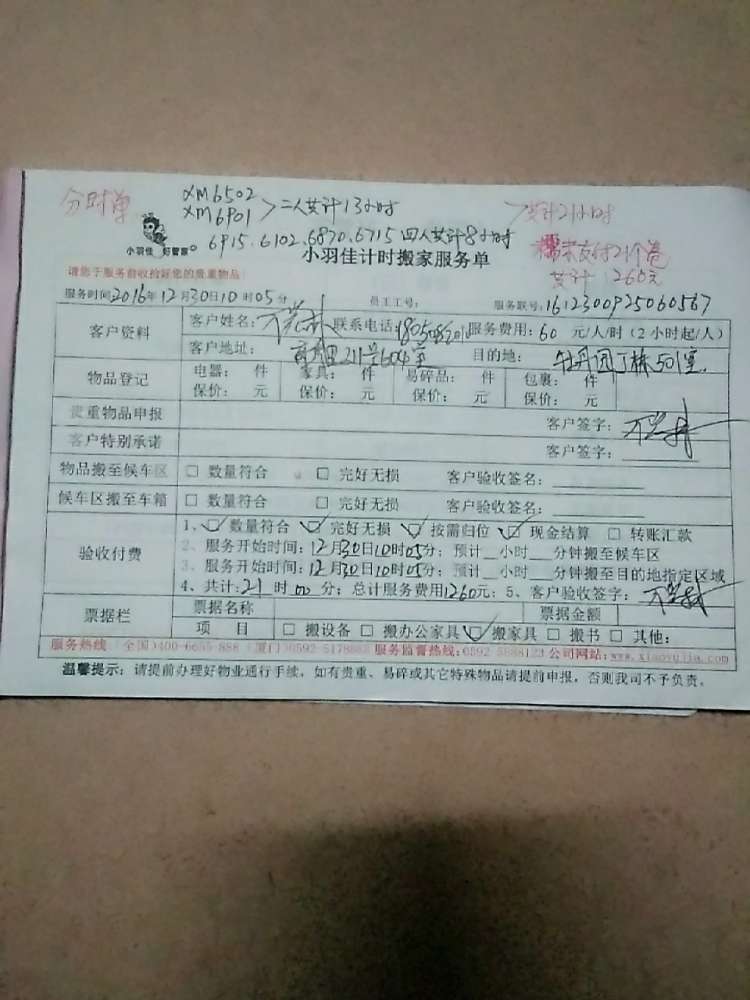 分时单
XM6502
XM6901 >二人共计13小时
>共计21小时
6915.6102.6870.6715 四人共计8小时
小羽佳 好管家
小羽佳计时搬家服务单
共计1260元
请您于服务前收拾好您的贵重物品
服务时间2016年12月30日10时05分 员工工号: 服务联号:1612300925060567
客户资料 客户姓名: 联系电话: 服务费用:60 元/人/时(2小时起/人)
客户地址: 211号604室 目的地: 牡丹园丁栋501室
物品登记 电器: 件 家具: 件 易碎品: 件 包裹: 件
保价: 元 保价: 元 保价: 元 保价: 元
贵重物品申报 客户签字:
客户特别承诺 客户签字:
物品搬至候车区 □ 数量符合 □ 完好无损 客户验收签名:
候车区搬至车箱 □ 数量符合 □ 完好无损 客户验收签名:
验收付费 1、☑数量符合 ☑完好无损 ☑按需归位 ☑现金结算 □ 转账汇款
2、服务开始时间:12月30日10时05分;预计__小时__分钟搬至候车区
3、服务开始时间:12月30日10时05分;预计__小时__分钟搬至目的地指定区域
4、共计:21 时00分;总计服务费用1260元;5、客户验收签字:
票据栏 票据名称 票据金额
项 目 □ 搬设备 □ 搬办公家具 ☑搬家具 □ 搬书 □ 其他:
服务热线 (全国)400-6655-888 (厦门)0592-5178883 服务监督热线:0592-5888123 公司网站:www.xiaoyujia.com
温馨提示:请提前办理好物业通行手续,如有贵重、易碎或其它特殊物品请提前申报,否则我司不予负责。